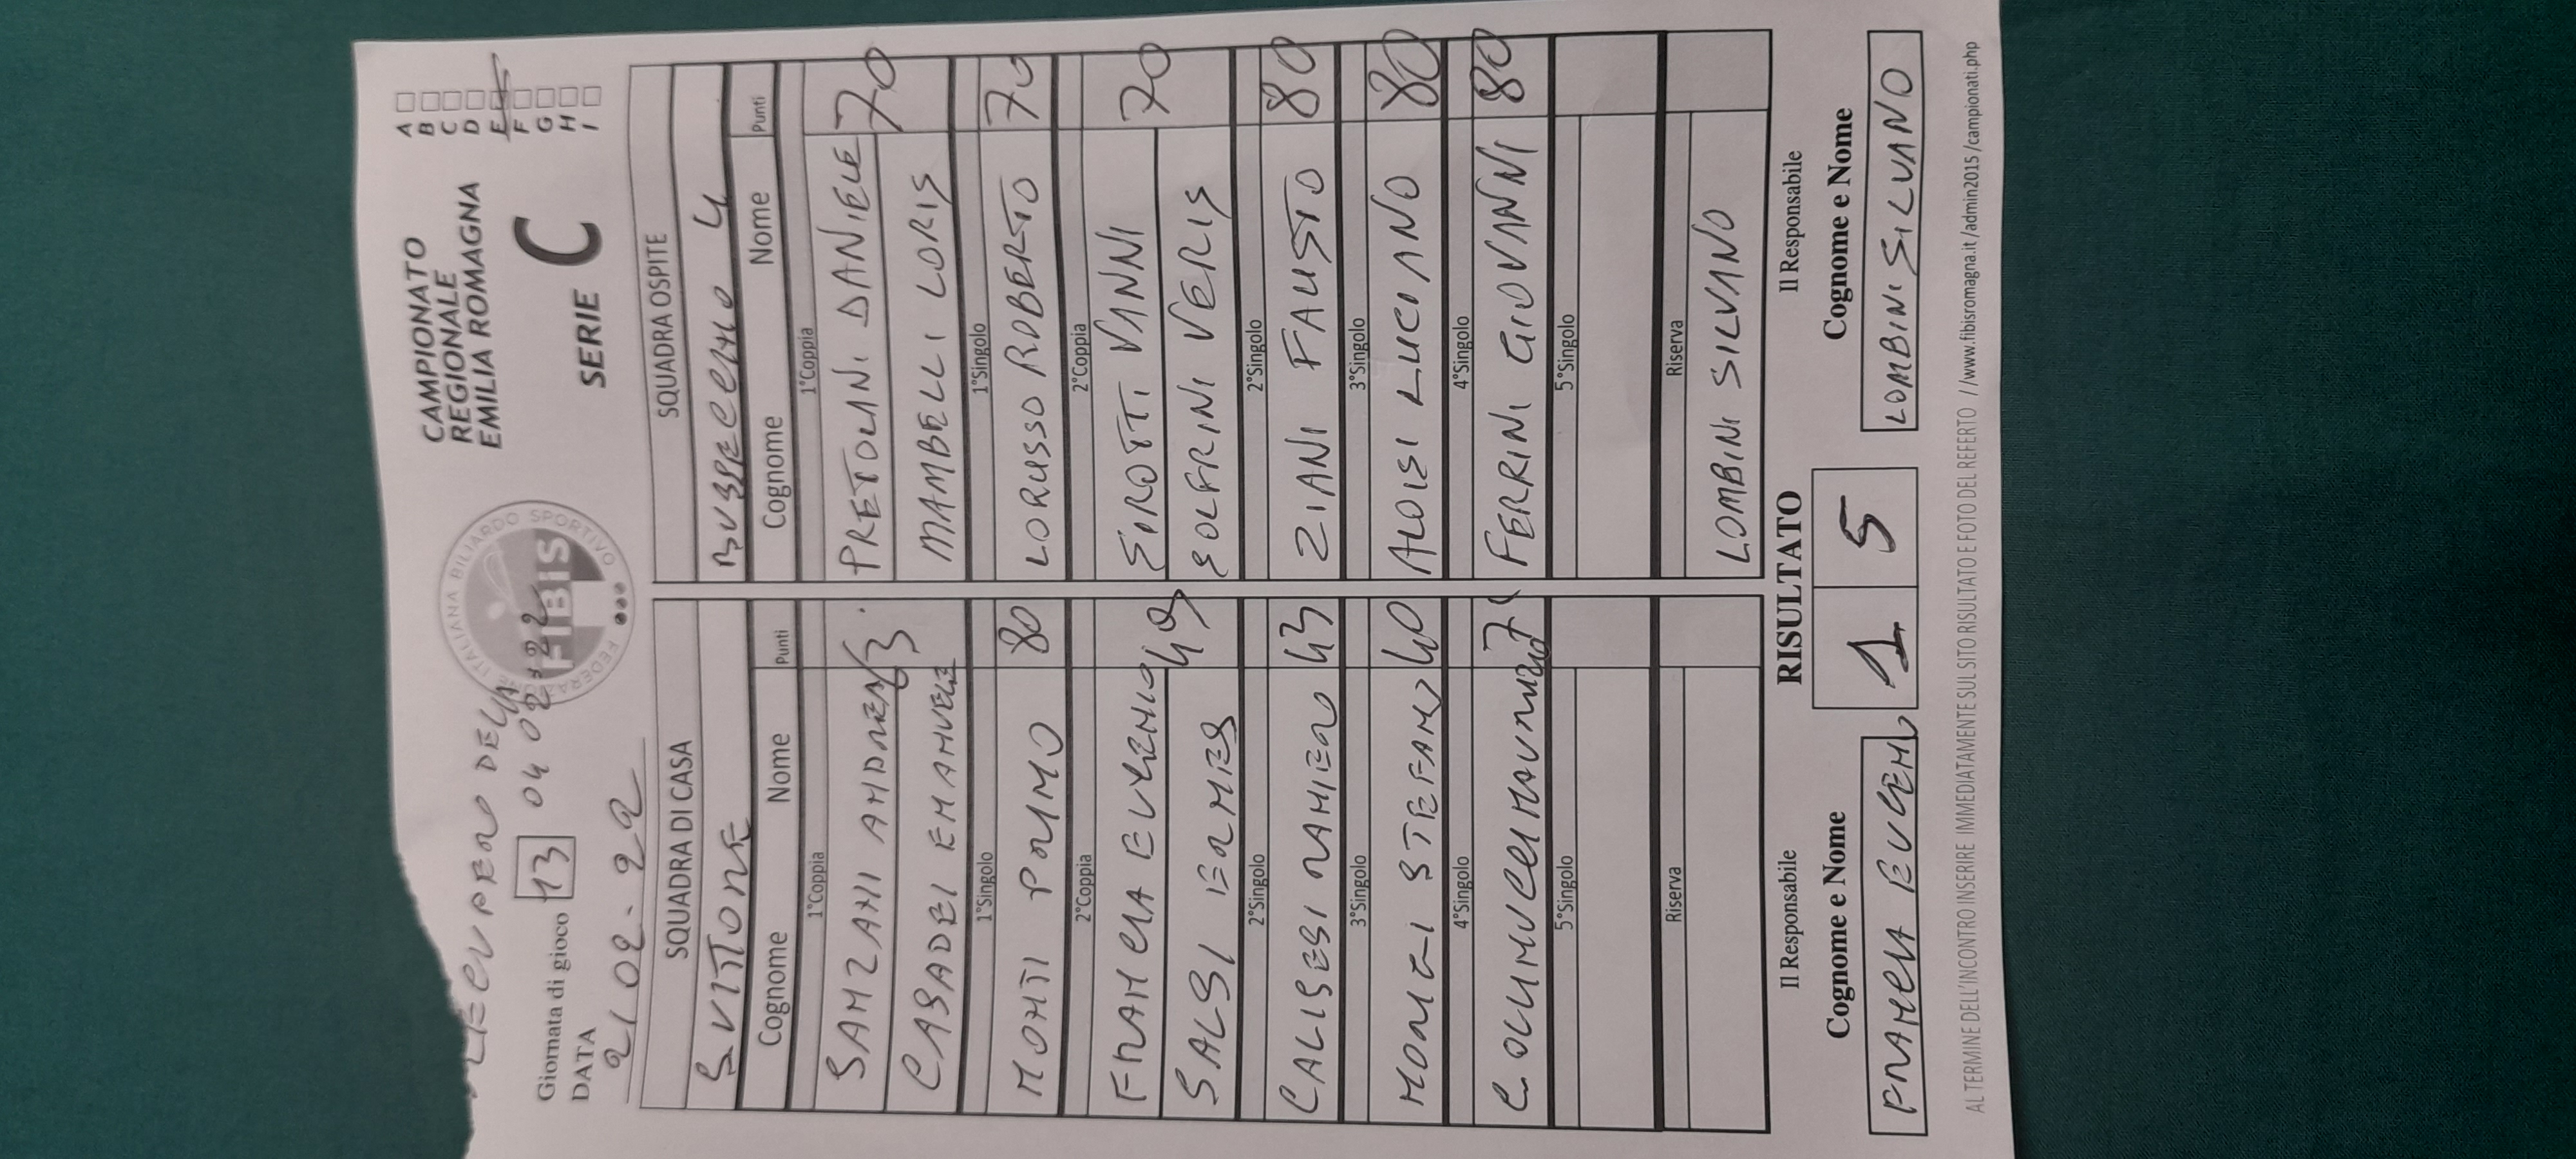 RECUPERO DELLA
Giornata di gioco 13 04 02-22
DATA
21 02-22
FEDERAZIONE ITALIANA BILIARDO SPORTIVO
FIBIS
CAMPIONATO
REGIONALE
EMILIA ROMAGNA
SERIE C
A
B
C
D
E
F
G
H
I
SQUADRA DI CASA
SVITTONE
Cognome Nome Punti
1°Coppia
SANZANI ANDREA
CASADEI EMANUELE
1°Singolo
MONTI PRIMO 80
2°Coppia
FRANCIA EUGENIO 49
SALSI ERMES
2°Singolo
CALISESI RANIERO 43
3°Singolo
MORIGI STEFANO 40
4°Singolo
5°Singolo
Riserva
SQUADRA OSPITE
BUSSECCHIO 4
Cognome Nome Punti
1°Coppia
PRETOLANI DANIELE 70
MAMBELLI LORIS
1°Singolo
LORUSSO ROBERTO 70
2°Coppia
SIROTTI VANNI 70
SOLFRINI VERIS
2°Singolo
ZIANI FAUSTO 80
3°Singolo
ALOISI LUCIANO 80
4°Singolo
FERRINI GIOVANNI 80
5°Singolo
Riserva
LOMBINI SILVANO
Il Responsabile
Cognome e Nome
FRANCIA EUGENIO
RISULTATO
1 5
Il Responsabile
Cognome e Nome
LOMBINI SILVANO
AL TERMINE DELL'INCONTRO INSERIRE IMMEDIATAMENTE SUL SITO RISULTATO E FOTO DEL REFERTO //www.fibisromagna.it/admin2015/campionati.php